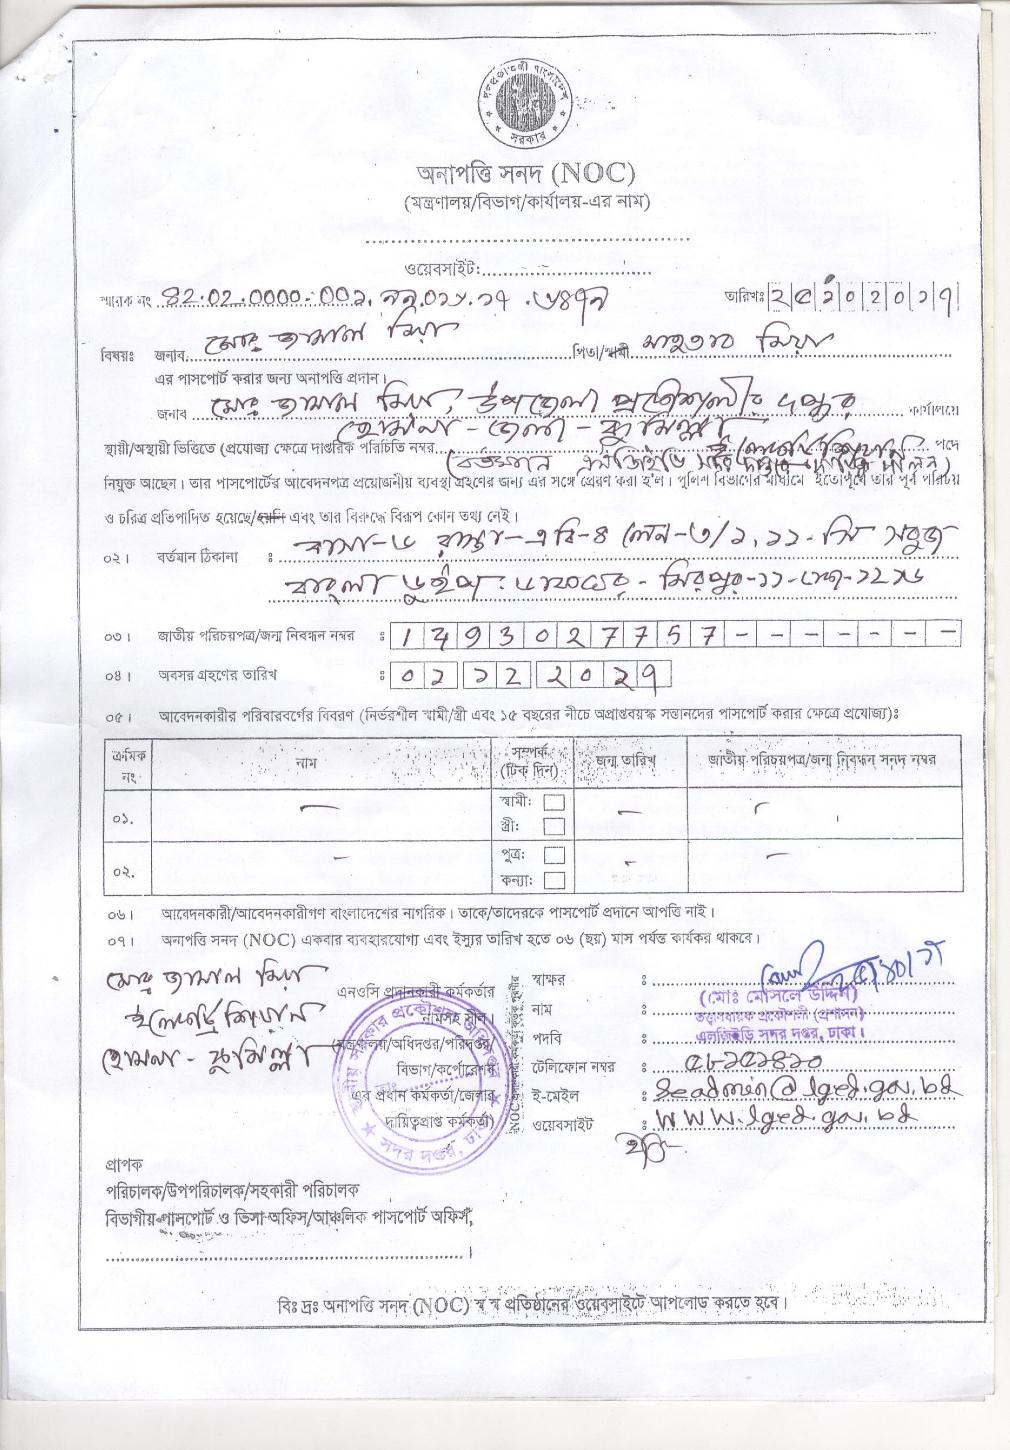 গণপ্রজাতন্ত্রী বাংলাদেশ
সরকার
অনাপত্তি সনদ (NOC)
(মন্ত্রণালয়/বিভাগ/কার্যালয়-এর নাম)
ওয়েবসাইট:
স্মারক নং
তারিখঃ
মোঃ জামাল মিয়া
বিষয়ঃ জনাব পিতা/স্বামী মিয়া
এর পাসপোর্ট করার জন্য অনাপত্তি প্রদান।
জনাব মোঃ জামাল মিয়া, উপজেলা প্রকৌশলীর দপ্তর কার্যালয়ে
হোমনা - জেলা - কুমিল্লা
স্থায়ী/অস্থায়ী ভিত্তিতে (প্রযোজ্য ক্ষেত্রে দাপ্তরিক পরিচিতি নম্বর ইলেকট্রিশিয়ান পদে
(বর্তমান এলজিইডি সদর দপ্তর
নিযুক্ত আছেন। তার পাসপোর্টের আবেদনপত্র প্রয়োজনীয় ব্যবস্থা গ্রহণের জন্য এর সঙ্গে প্রেরণ করা হ'ল। পুলিশ বিভাগের মাধ্যমে ইতোপূর্বে তার পূর্ব পরিচয়
ও চরিত্র প্রতিপাদিত হয়েছে/হয়নি এবং তার বিরুদ্ধে বিরূপ কোন তথ্য নেই।
০২। বর্তমান ঠিকানা : বাসা-৬ রাস্তা-এ বি-৪ লেন-৩/১, ১১-সি সবুজ
বাংলা মিরপুর-১১-ঢাকা-১২১৬
০৩। জাতীয় পরিচয়পত্র/জন্ম নিবন্ধন নম্বর : 1 4 9 3 0 2 7 7 5 7 - - - - - - -
০৪। অবসর গ্রহণের তারিখ : ০১ ১২ ২০২৭
০৫। আবেদনকারীর পরিবারবর্গের বিবরণ (নির্ভরশীল স্বামী/স্ত্রী এবং ১৫ বছরের নীচে অপ্রাপ্তবয়স্ক সন্তানদের পাসপোর্ট করার ক্ষেত্রে প্রযোজ্য)ঃ
ক্রমিক নং নাম সম্পর্ক (টিক দিন) জন্ম তারিখ জাতীয় পরিচয়পত্র/জন্ম নিবন্ধন সনদ নম্বর
০১. — স্বামী: — -
স্ত্রী:
০২. - পুত্র: - —
কন্যা:
০৬। আবেদনকারী/আবেদনকারীগণ বাংলাদেশের নাগরিক। তাকে/তাদেরকে পাসপোর্ট প্রদানে আপত্তি নাই।
০৭। অনাপত্তি সনদ (NOC) একবার ব্যবহারযোগ্য এবং ইস্যুর তারিখ হতে ০৬ (ছয়) মাস পর্যন্ত কার্যকর থাকবে।
মোঃ জামাল মিয়া
ইলেকট্রিশিয়ান
হোমনা - কুমিল্লা
এনওসি প্রদানকারী কর্মকর্তার
নামসহ সীল।
(মন্ত্রণালয়/অধিদপ্তর/পরিদপ্তর/
বিভাগ/কর্পোরেশন
এর প্রধান কর্মকর্তা/জেলার
দায়িত্বপ্রাপ্ত কর্মকর্তা)
স্থানীয় সরকার প্রকৌশল অধিদপ্তর
সদর দপ্তর, ঢাকা
স্বাক্ষর :
নাম : (মোঃ মোসলে উদ্দিন)
পদবি : তত্ত্বাবধায়ক প্রকৌশলী (প্রশাসন)
এলজিইডি সদর দপ্তর, ঢাকা।
টেলিফোন নম্বর :
ই-মেইল : seadmin@lged.gov.bd
ওয়েবসাইট : www.lged.gov.bd
প্রাপক
পরিচালক/উপপরিচালক/সহকারী পরিচালক
বিভাগীয় পাসপোর্ট ও ভিসা অফিস/আঞ্চলিক পাসপোর্ট অফিস,
বিঃ দ্রঃ অনাপত্তি সনদ (NOC) স্ব স্ব প্রতিষ্ঠানের ওয়েবসাইটে আপলোড করতে হবে।